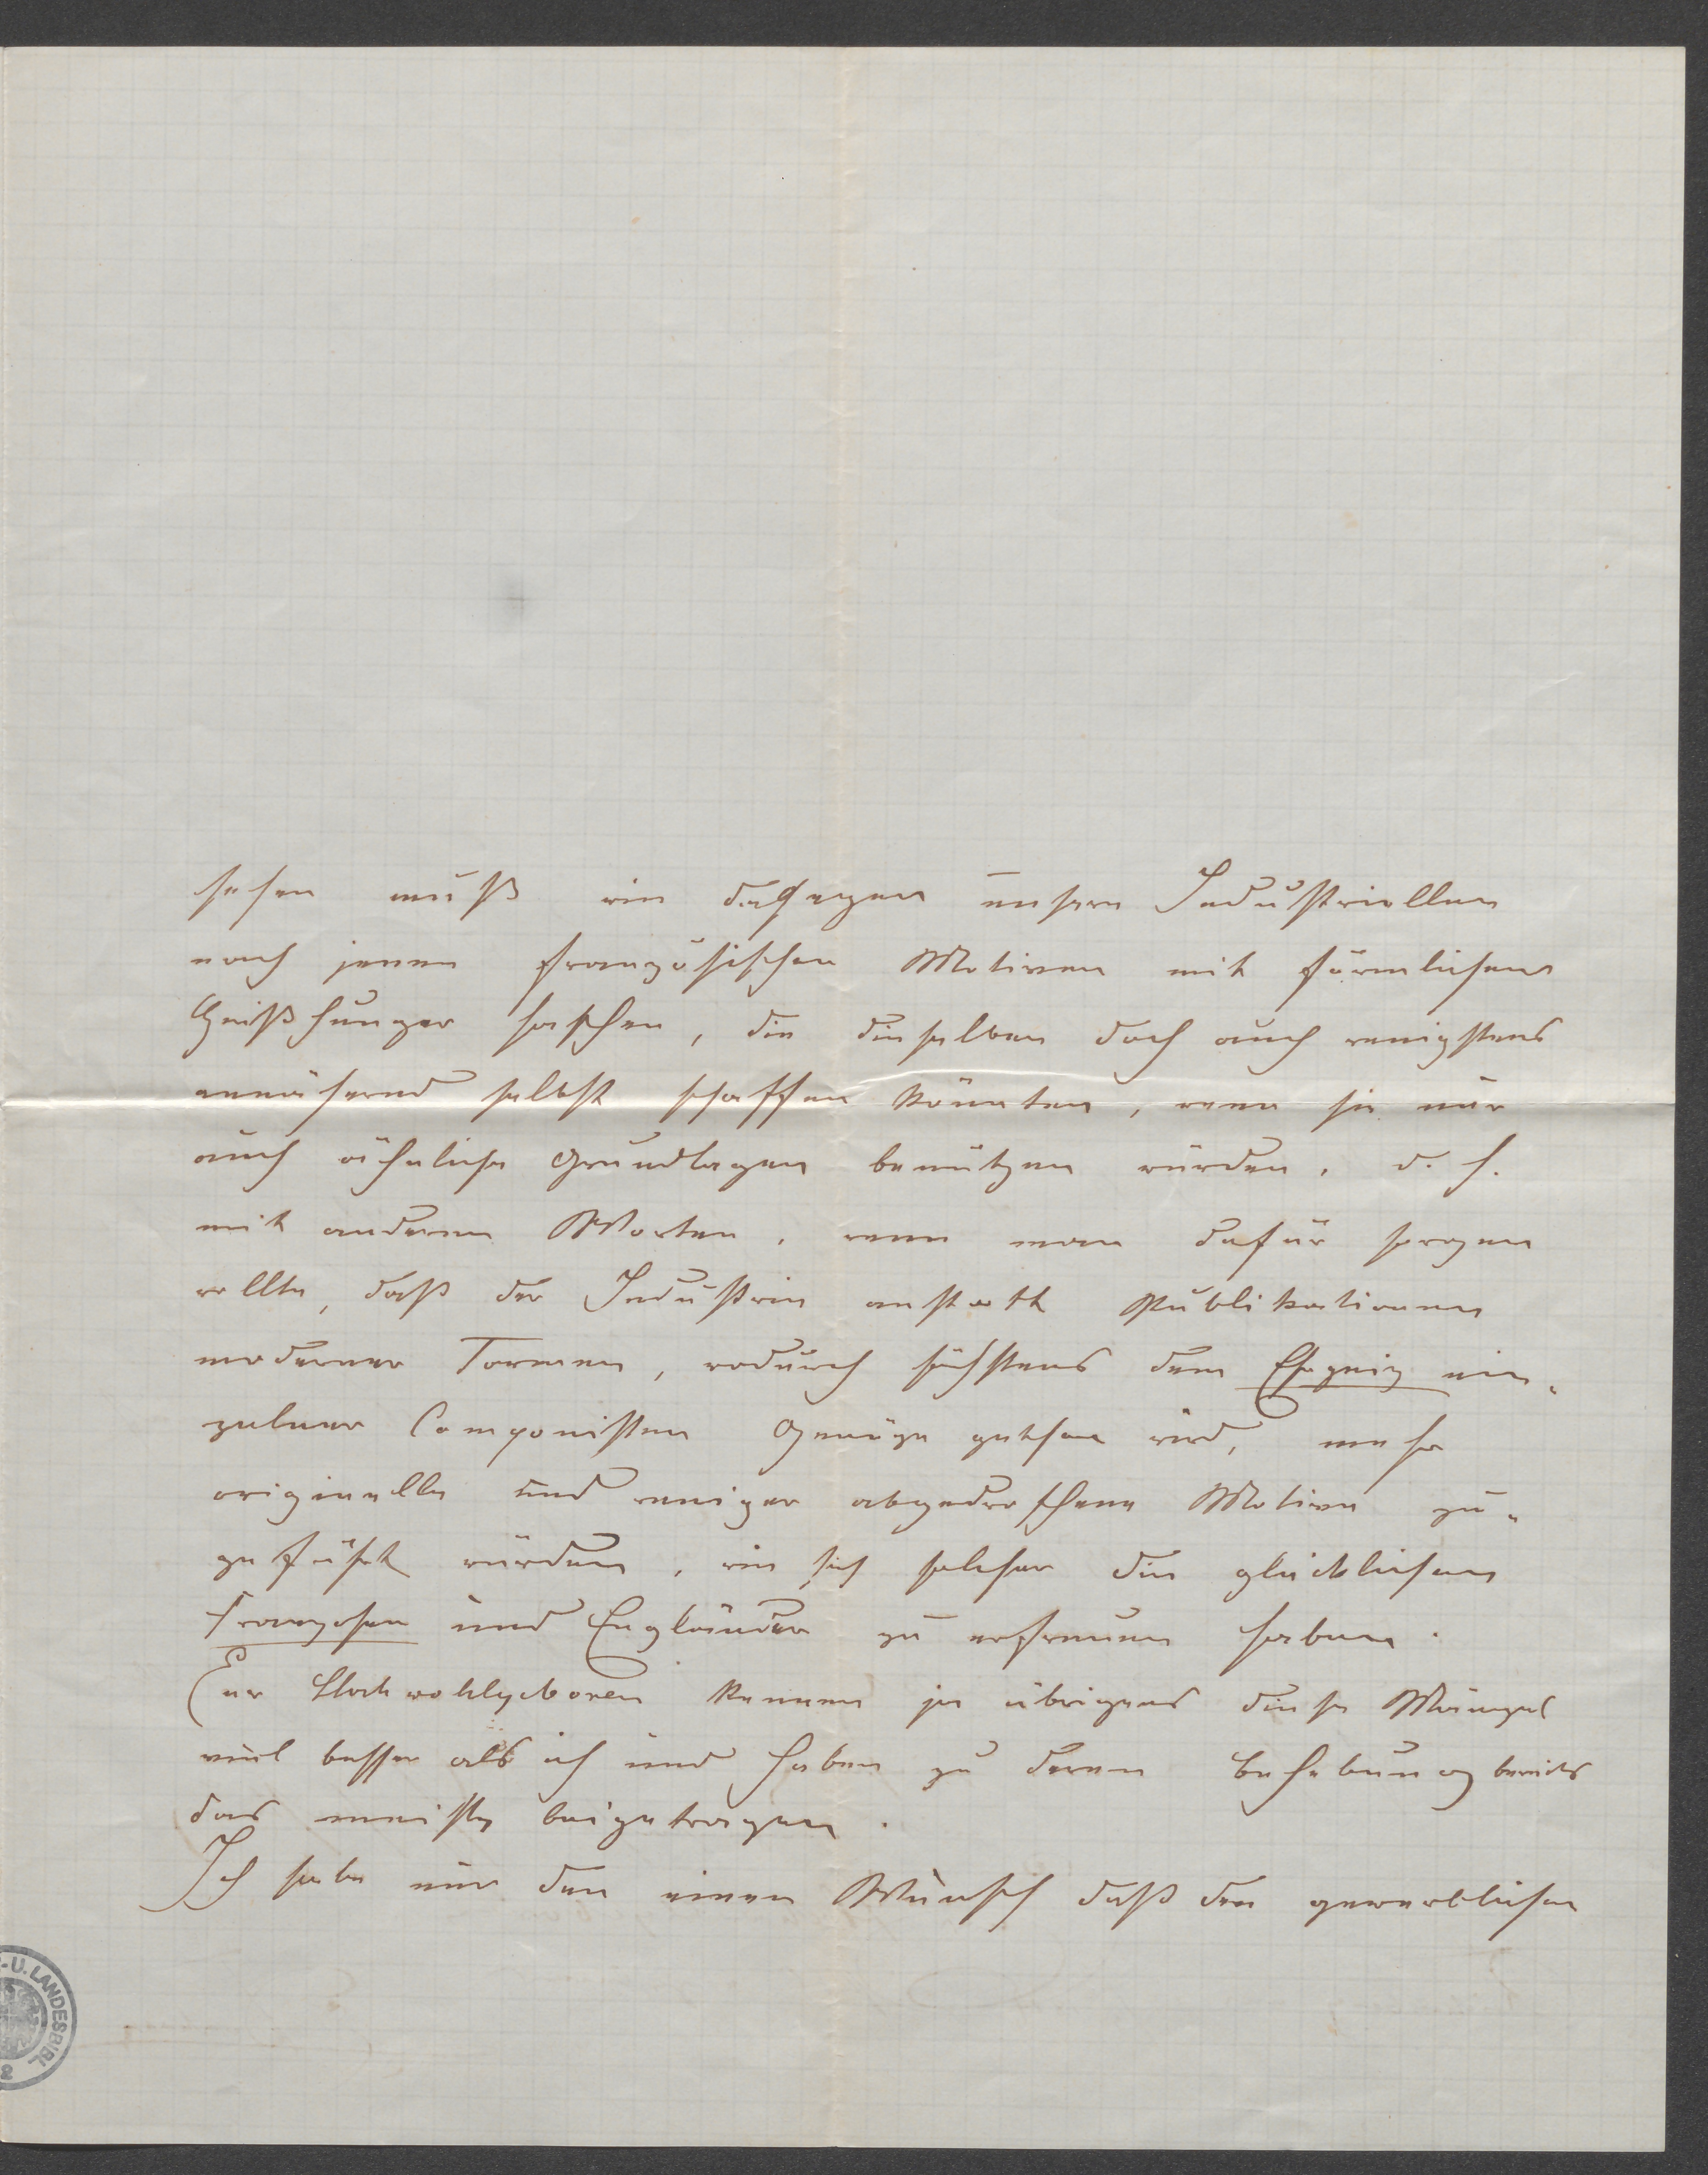 sehen muß wie dagegen unsere Industriellen
nach jenen französischen Motiven mit förmlichem
Heißhunger haschen, die dieselben doch auch wenigstens
annähernd selbst schaffen könnten, wenn sie nur
auch ähnliche Grundlagen benützen würden, d. h.
mit anderen Worten, wenn man dafür sorgen
wollte, daß der Industrie anstatt Publikationen
moderner Formen, wodurch höchstens dem Ehrgeiz ein-
zelner Componisten Genüge gethan wird, mehr
originelle und weniger abgedroschene Motive zu-
geführt würden, wie sich solcher die glücklichen
Franzosen und Engländer zu erfreuen haben.
Euer Hochwohlgeboren kennen ja übrigens diese Mängel
viel besser als ich und haben zu deren Behebung bereits
das meiste beigetragen.
Ich habe nur den einen Wunsch daß den gewerblichen
-U. LANDESBIBL